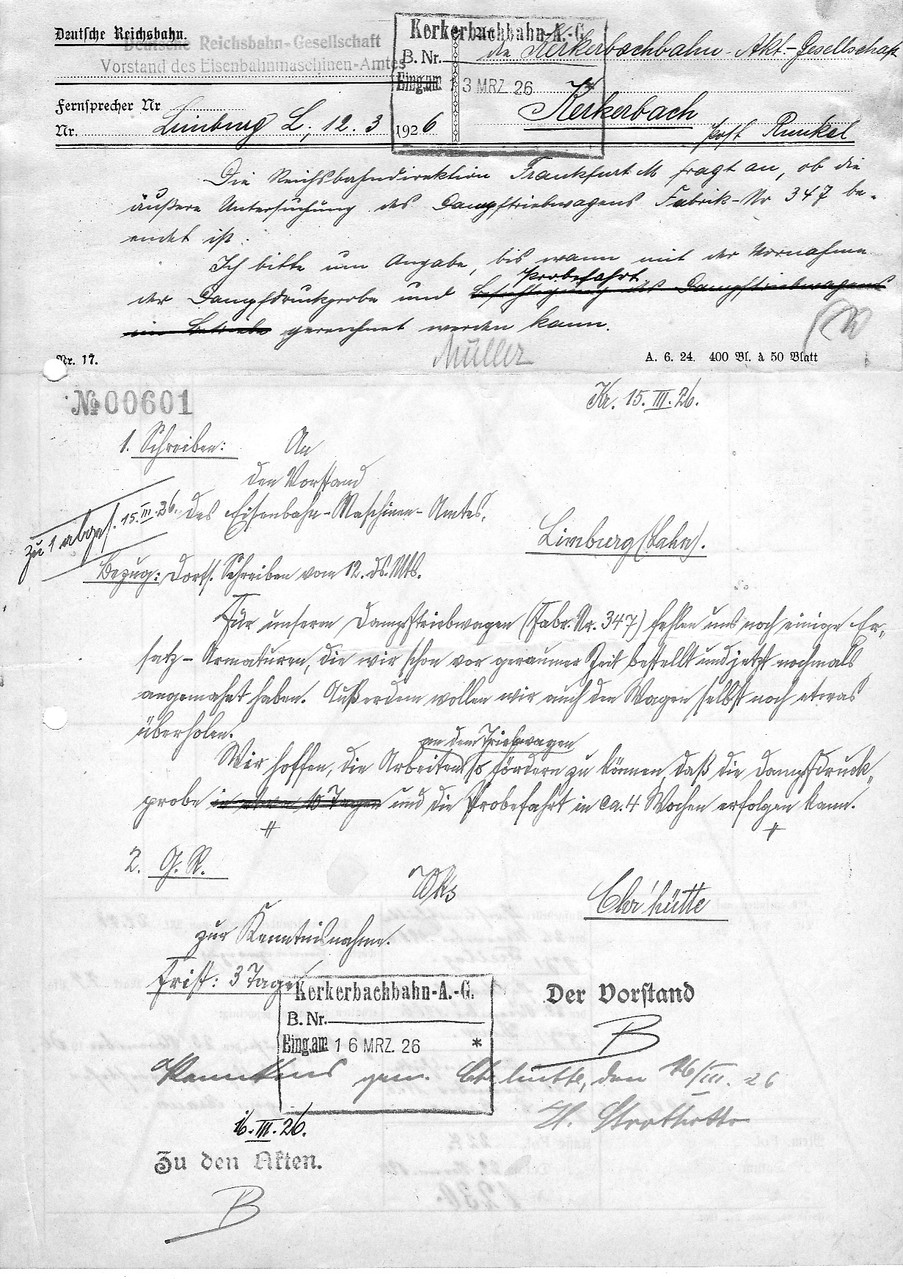 Deutsche Reichsbahn.
Deutsche Reichsbahn-Gesellschaft
Vorstand des Eisenbahnmaschinen-Amtes
Kerkerbachbahn-A.-G.
B. Nr.
Eing. am 13 MRZ. 26 *
die Kerkerbachbahn Akt-Gesellschaft
Kerkerbach
Post Runkel
Fernsprecher Nr
Nr. Limburg L, 12. 3 1926
Die Reichsbahndirektion Frankfurt M fragt an, ob die
äußere Untersuchung des Dampftriebwagens Fabrik-Nr 347 be-
endet ist.
Ich bitte um Angabe, bis wann mit der Vornahme
Probefahrt
der Dampfdruckprobe und des Dampftriebwagens
im Betriebe gerechnet werden kann.
Müller
Nr. 17.
A. 6. 24. 400 Bl. à 50 Blatt
№ 00601
Kr. 15. III. 26.
1. Schreiben: An
den Vorstand
des Eisenbahn-Maschinen-Amtes.
zu 1 abges. 15. III. 26.
Limburg (Lahn).
Bezug: Dorts. Schreiben vom 12. ds. Mts.
Für unseren Dampftriebwagen (Fabr. Nr. 347) fehlen uns noch einige Er-
satz-Armaturen, die wir schon vor geraumer Zeit bestellt und jetzt nochmals
angemahnt haben. Außerdem wollen wir auch den Wagen selbst noch etwas
überholen.
an dem Triebwagen
Wir hoffen, die Arbeiten so fördern zu können daß die Dampfdruck-
probe in etwa 10 Tagen und die Probefahrt in ca. 4 Wochen erfolgen kann.
2. G. R.
Christ'hütte
zur Kenntnisnahme.
Frist: 3 Tage
Kerkerbachbahn-A.-G.
B. Nr.
Eing. am 16 MRZ. 26 *
Der Vorstand
B
Kenntnis gen. den 16/III. 26
16. III. 26.
Zu den Akten.
B